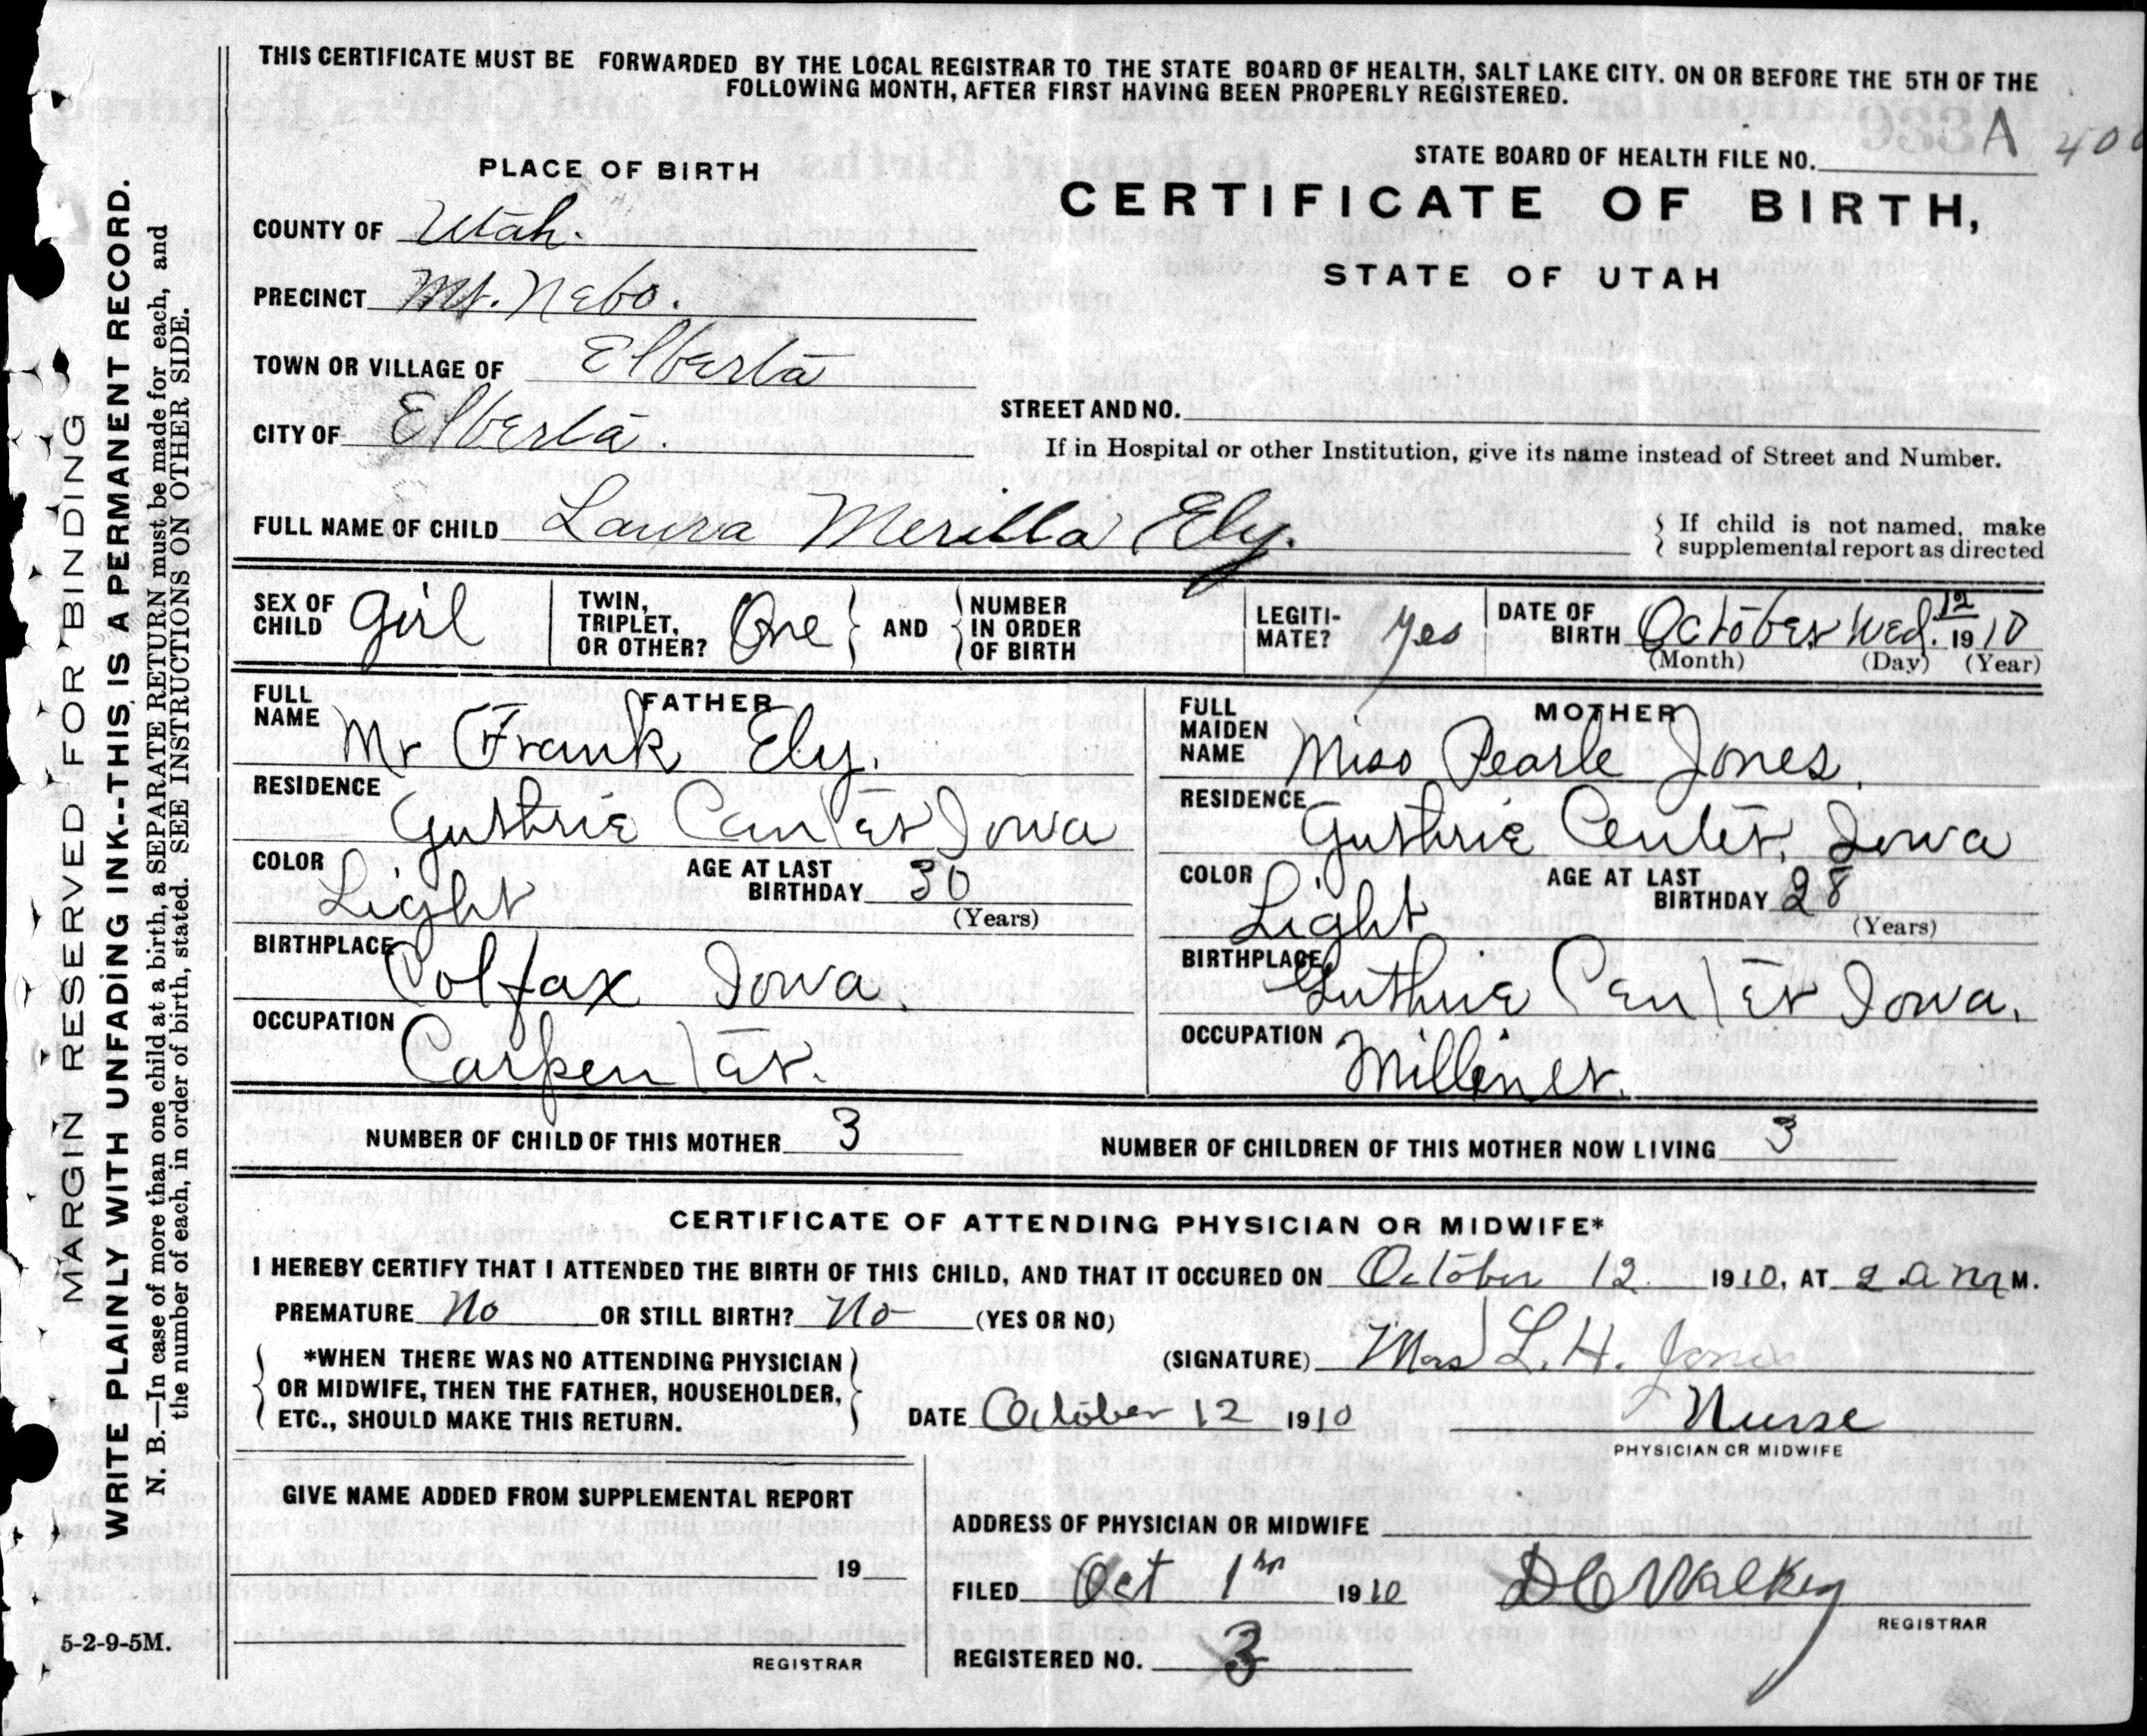 THIS CERTIFICATE MUST BE FORWARDED BY THE LOCAL REGISTRAR TO THE STATE BOARD OF HEALTH, SALT LAKE CITY. ON OR BEFORE THE 5TH OF THE
FOLLOWING MONTH, AFTER FIRST HAVING BEEN PROPERLY REGISTERED.
STATE BOARD OF HEALTH FILE NO. 933 A 400
PLACE OF BIRTH
CERTIFICATE OF BIRTH,
STATE OF UTAH
COUNTY OF Utah.
PRECINCT Mt. Nebo.
TOWN OR VILLAGE OF Elberta
CITY OF Elberta.
STREET AND NO.
If in Hospital or other Institution, give its name instead of Street and Number.
FULL NAME OF CHILD Laura Merilla Ely.
If child is not named, make
supplemental report as directed
SEX OF CHILD girl
TWIN, TRIPLET, OR OTHER? One
AND
NUMBER IN ORDER OF BIRTH
LEGITI-MATE? yes
DATE OF BIRTH October Wed. 12 1910
(Month) (Day) (Year)
FATHER
FULL NAME Mr Frank Ely.
RESIDENCE Guthrie Center Iowa
COLOR Light
AGE AT LAST BIRTHDAY 30
(Years)
BIRTHPLACE Colfax Iowa.
OCCUPATION Carpenter.
MOTHER
FULL MAIDEN NAME Miss Pearle Jones.
RESIDENCE Guthrie Center, Iowa
COLOR Light
AGE AT LAST BIRTHDAY 28
(Years)
BIRTHPLACE Guthrie Center Iowa.
OCCUPATION Milliner.
NUMBER OF CHILD OF THIS MOTHER 3
NUMBER OF CHILDREN OF THIS MOTHER NOW LIVING 3
CERTIFICATE OF ATTENDING PHYSICIAN OR MIDWIFE*
I HEREBY CERTIFY THAT I ATTENDED THE BIRTH OF THIS CHILD, AND THAT IT OCCURED ON October 12 1910, AT 2 a m M.
PREMATURE No OR STILL BIRTH? No (YES OR NO)
*WHEN THERE WAS NO ATTENDING PHYSICIAN
OR MIDWIFE, THEN THE FATHER, HOUSEHOLDER,
ETC., SHOULD MAKE THIS RETURN.
(SIGNATURE) Mrs L. H. Jones
DATE October 12 1910
Nurse
PHYSICIAN OR MIDWIFE
GIVE NAME ADDED FROM SUPPLEMENTAL REPORT
19
REGISTRAR
ADDRESS OF PHYSICIAN OR MIDWIFE
FILED Oct 1910
REGISTRAR
REGISTERED NO. 3
5-2-9-5M.
MARGIN RESERVED FOR BINDING
WRITE PLAINLY WITH UNFADING INK--THIS IS A PERMANENT RECORD.
N. B.—In case of more than one child at a birth, a SEPARATE RETURN must be made for each, and
the number of each, in order of birth, stated. SEE INSTRUCTIONS ON OTHER SIDE.